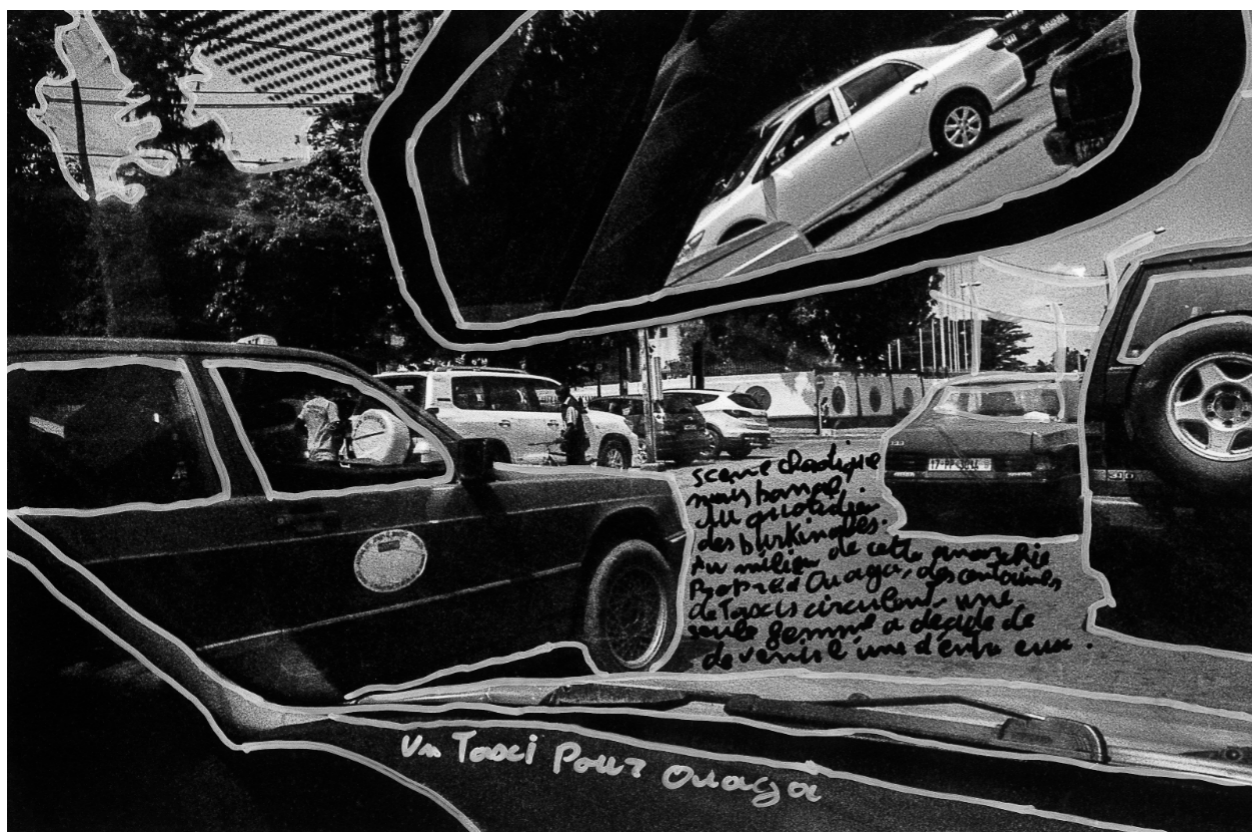 scène chaotique
mais banale
du quotidien
des burkinabés.
Au milieu de cette anarchie
propre à Ouaga, des centaines
de Taxis circulent, une
seule femme a décidé de
devenir l'une d'entre eux.
Un Taxi Pour Ouaga